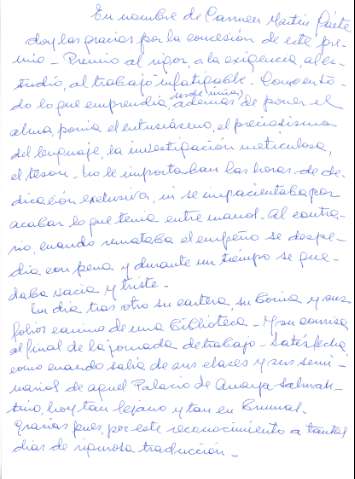 En nombre de Carmen Martín Gaite
doy las gracias por la concesión de este pre-
mio - Premio al rigor, a la exigencia, al es-
tudio, al trabajo infatigable. Como en to-
do lo que emprendía, además de poner el
alma, ponía el entusiasmo, el preciosismo
del lenguaje, la investigación meticulosa,
el tesón. No le importaban las horas de de-
dicación exclusiva, ni se impacientaba por
acabar lo que tenía entre manos. Al contra-
rio, cuando remataba el empeño se despe-
día con pena y durante un tiempo se que-
daba vacía y triste.
Un día tras otro su cartera, su boina y sus
folios camino de una biblioteca - Y su sonrisa
al final de la jornada de trabajo - Satisfecha
como cuando salía de sus clases y sus semi-
narios de aquel Palacio de Anaya salman-
tino, hoy tan lejano y tan
Gracias pues, por este reconocimiento a tantos
días de rigurosa traducción -